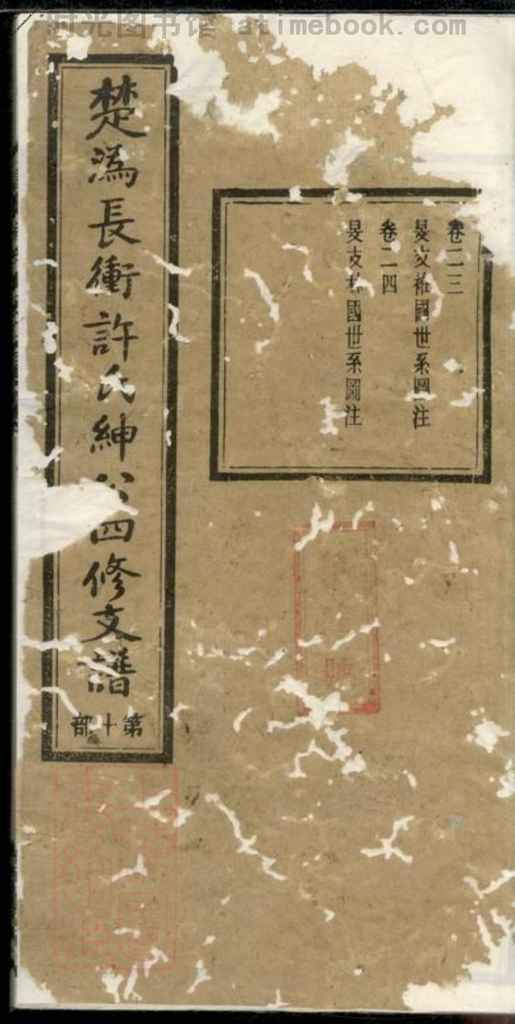 时光图书馆 atimebook.com
卷二三
旻支祐國世系圖注
卷二四
旻支祐國世系圖注
楚溈長衝許氏紳公四修支譜
第十部